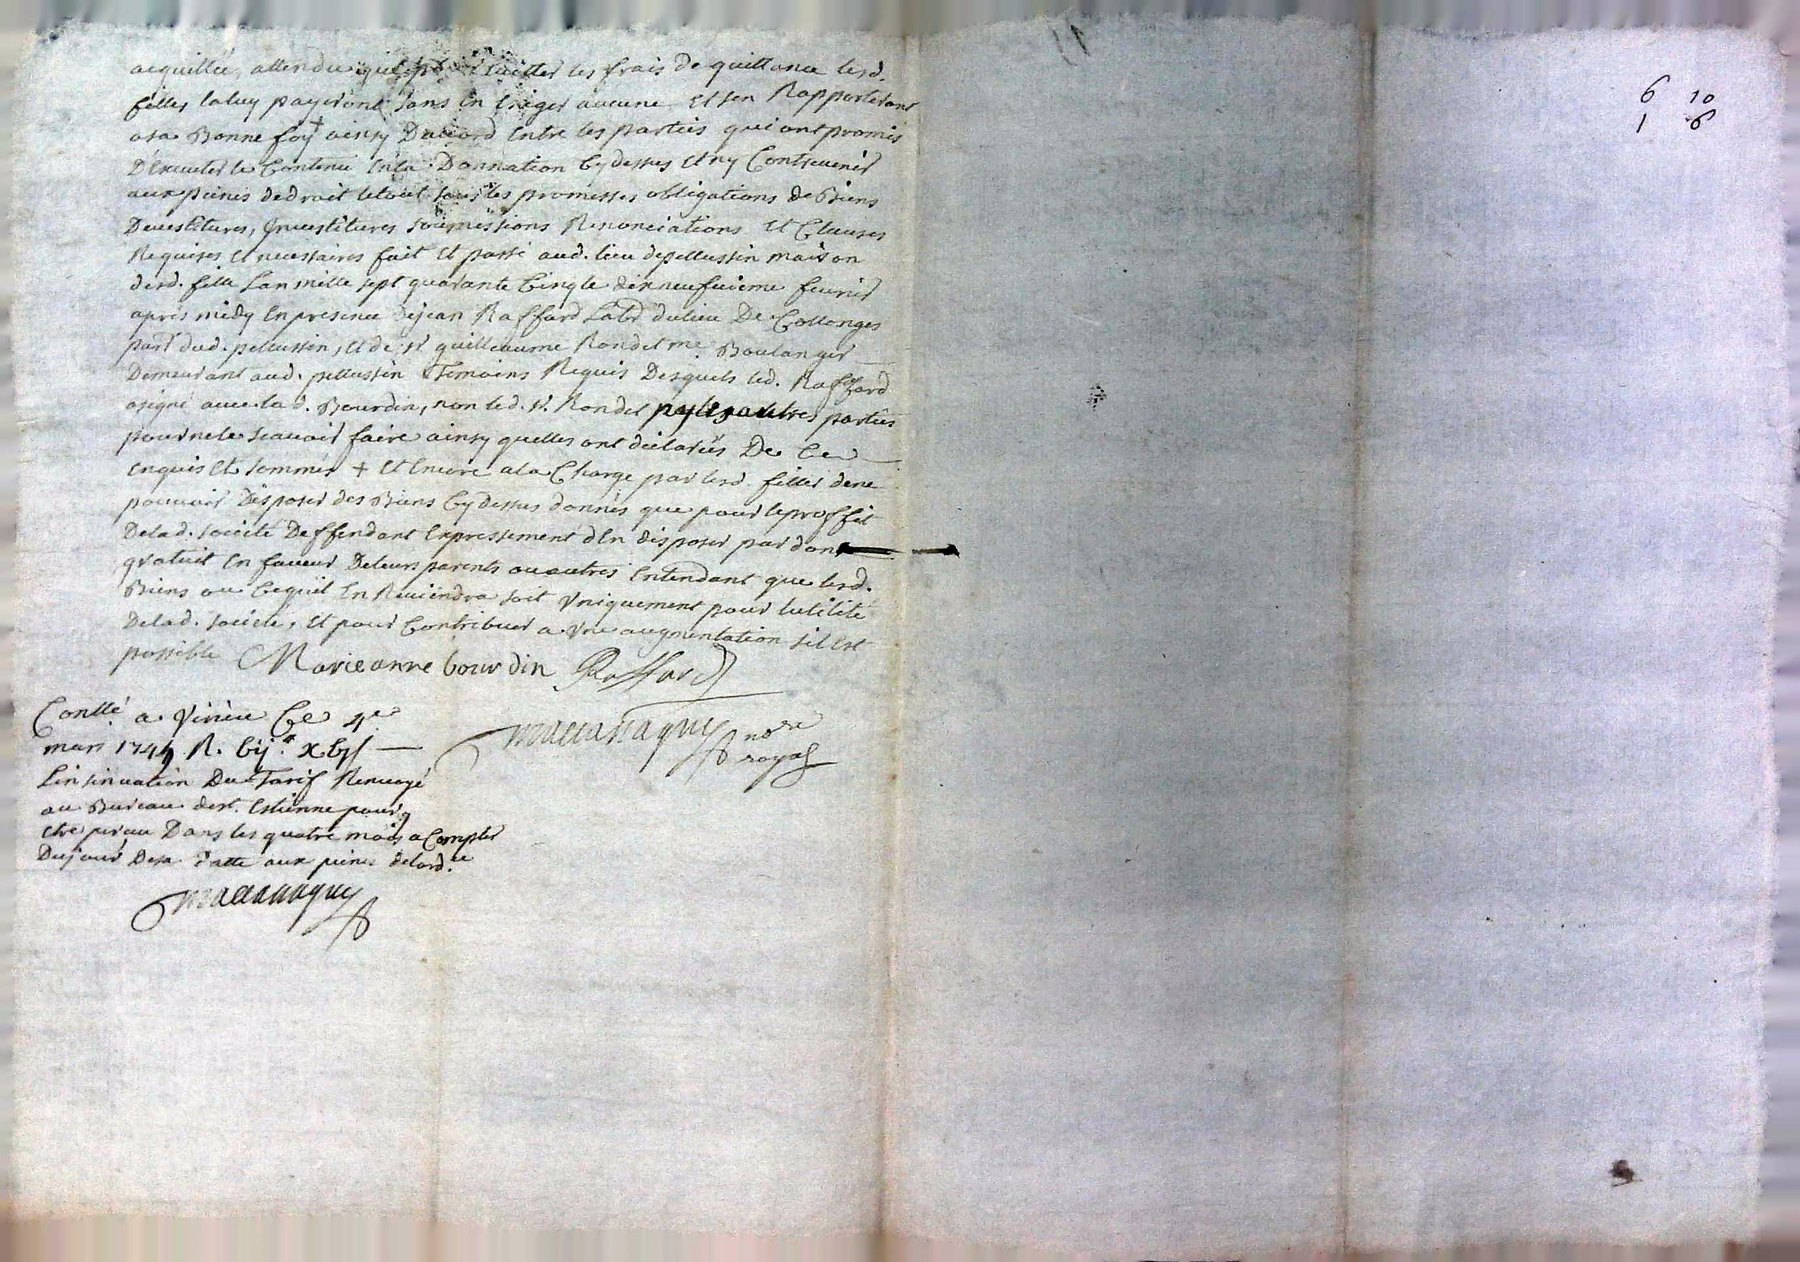 acquittée, attendu que pour eviter les frais de quittance lesd.
filles laluy payeront sans en Exiger aucune Et sen Rapporteront
asa Bonne foy + ainsy Daccord Entre les parties qui ont promis
D'Executer le Contenu En la Donnation Cy dessus et ny Contrevenir
aux peines de droit le tout sous les promesses obligations de Biens
Devestitures, Investitures soumissions Renonciations Et Clauses
Requises Et necessaires fait Et passé aud. lieu de pellussin maison
desd. fille Lan mille sept quarante Cinq le dix neufvieme fevrier
apres midy En presence de jean Raffard Labr du lieu De Collonges
parr. dud. pellussin, et de sr. guilleaume Rondet me. Boulanger
Demeurant aud. pellussin Temoins Requis Desquels led. Raffard
a signé avec lad. Bourdin, non led. sr. Rondet ny les autres parties
pour ne le scavoir faire ainsy quelles ont déclarées De Ce
enquis Et sommés + Et Encore a la Charge par lesd. filles de ne
pouvoir Disposer des Biens Cy dessus donnés que pour le proffit
De lad. societé Deffendant Expressement d'En disposer par don
gratuit En faveur De leurs parents ou autres Entendant que lesd.
Biens ou Ce quil En Reviendra soit Uniquement pour lutilité
De lad. societé, Et pour Contribuer a Une augmentation sil Est
possible Marieanne bourdin Raffard
nore
royal
Conllé a Virieu Ce 4e
mars 1745 R.
Linsinuation Du Tarif Renvoyé
au Bureau de st. Estienne pour y
etre perçu Dans les quatre mois a Compter
Du jour De sa datte aux peines de lord.ce
6 10
1 6